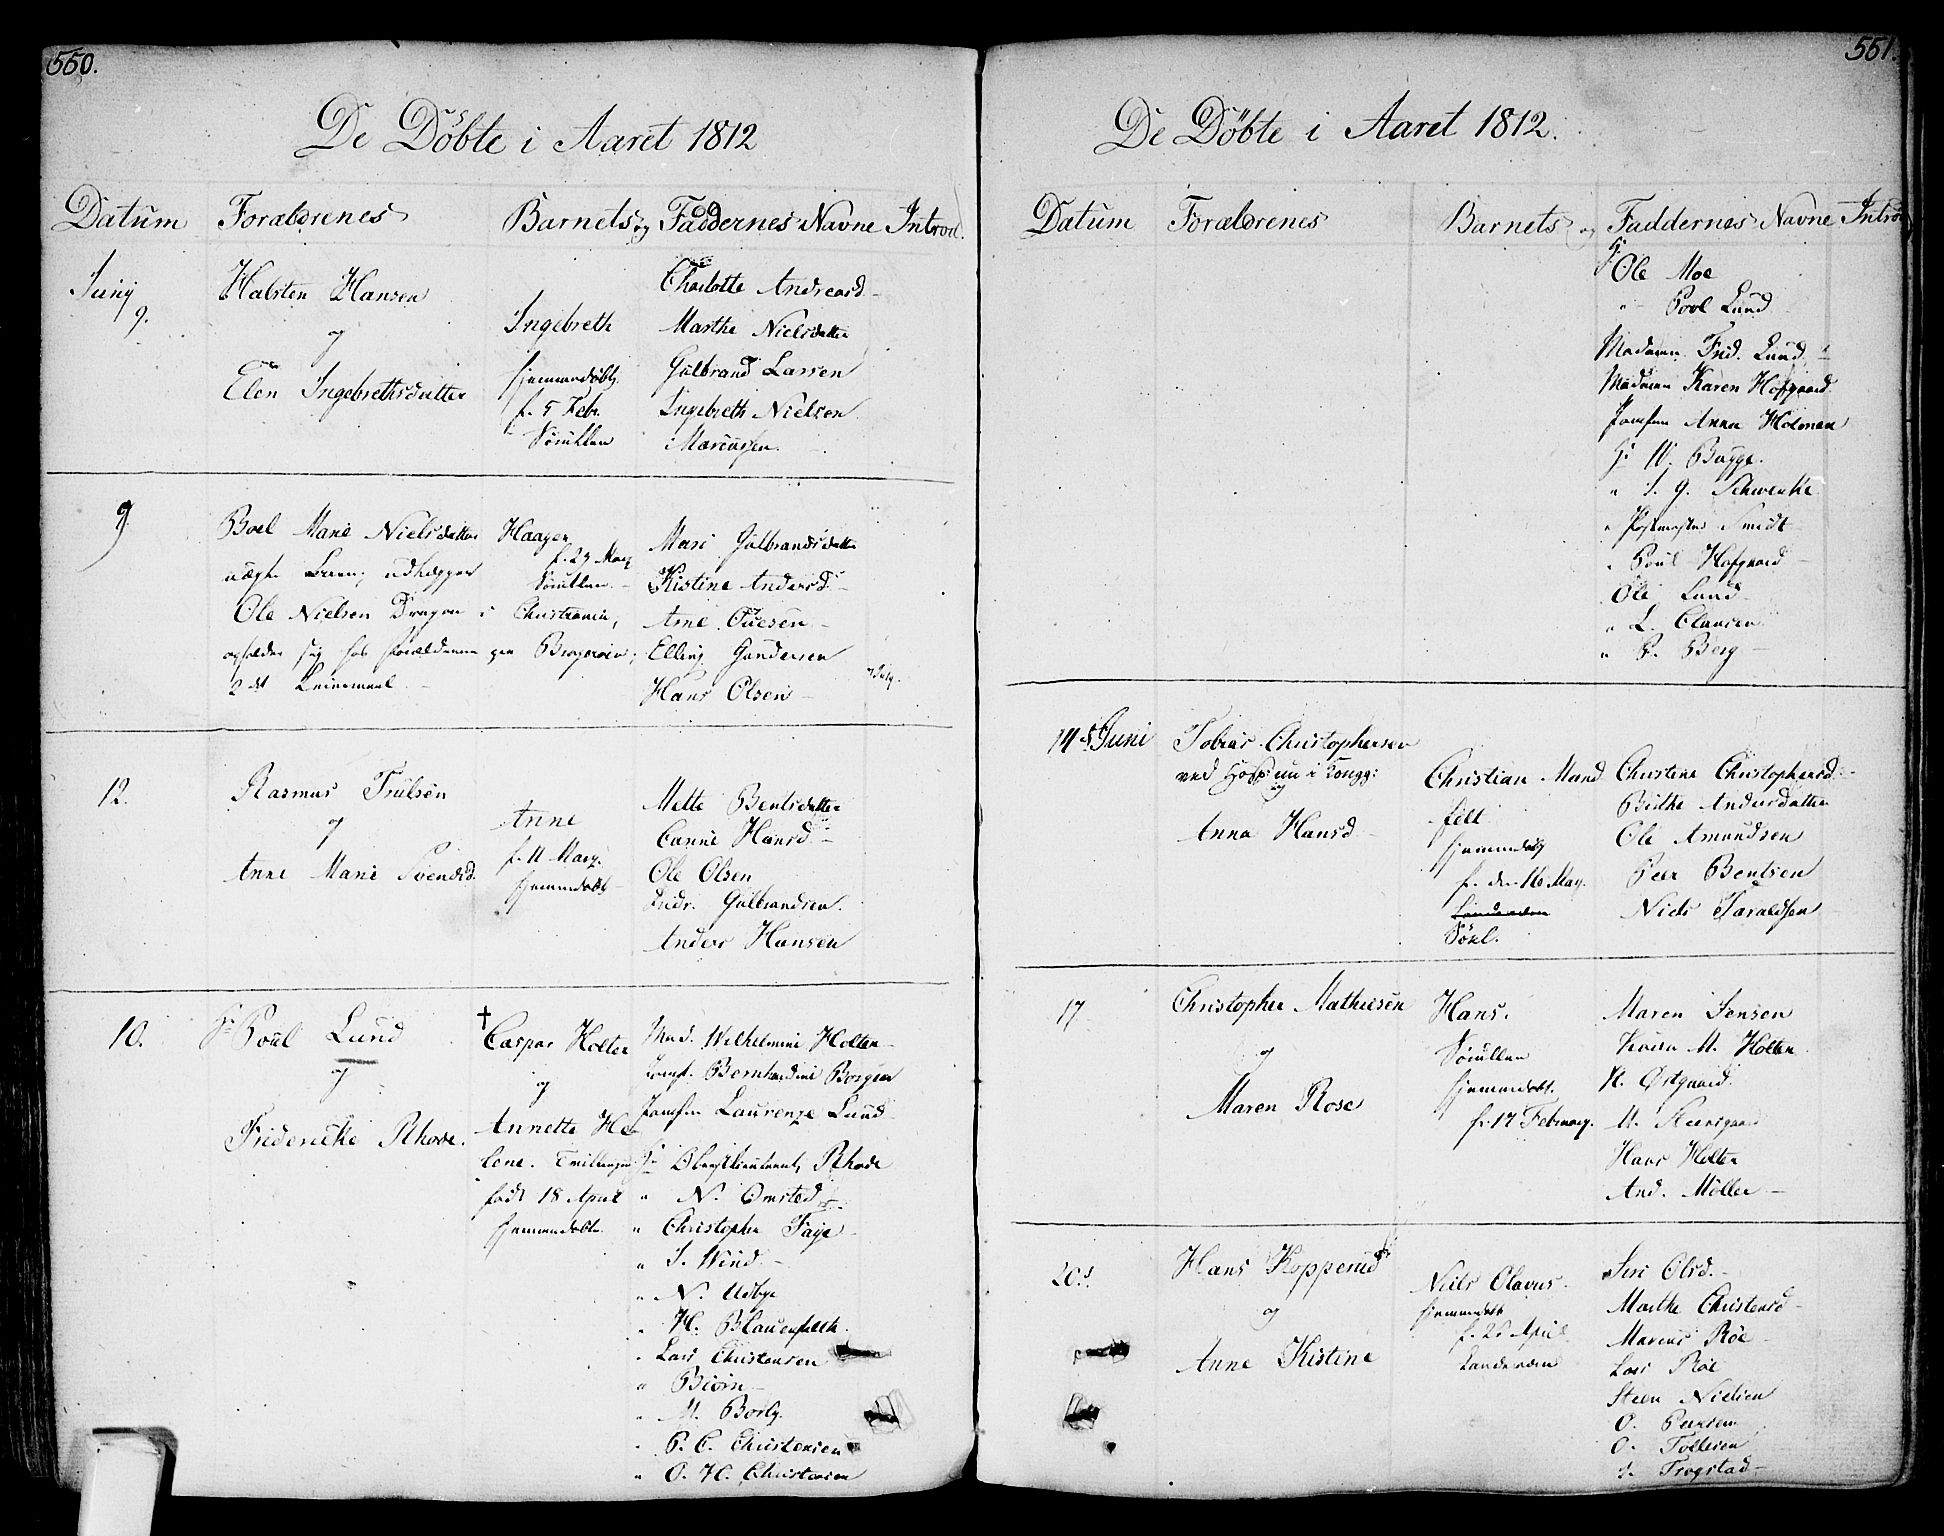 550.
De Döbte i Aaret 1812
Datum Forældrenes Barnets og Faddernes Navne Introd.
Junij 9.
Halsten Hansen
og
Elen Ingebrethsdatter
Ingebreth
hjemmedøbt
f. 5 Febr.
Charlotte Andreasd
Marthe Nielsdatter
Gulbrand Larsen
Ingebreth Nielsen
Marcussen
9
Boel Marie Nielsdatter
uægte Barn; udlægger
Ole Nielsen Dragon i Christiania,
opholder sig hos Forældrene paa Bragernes;
2det Leiermaal
Haagen
f. 29 May
Mari Gulbrandsdatter
Kistine Andersd
Arne Tuesen
Elling Gundersen
Hans Olsen
12.
Rasmus Trulsen
og
Anne Marie Svendsd.
Anne
f. 11 May.
hjemmedøbt
Mette Bentsdatter
Hansd
Ole Olsen
Fridr. Gulbrandsen.
Anders Hansen
10.
Hr Poul Lund
og
Fridericke Rhode.
† Caspar Holter
og
Annette He-
lene. Tvillinger
født 18 April
hjemmedøbte
Mad. Wilhelmine Holter
Jomf. Bernhardine Borgen
Jomfru Laurenze Lund
Hr Obrstlieutenant Rhode
" N. Omsted
" Christopher Faye
" J. Wind
" N. Udbye
" H. Blauenfeldt
" Lars Christensen
" Biørn
" M. Borly
" P. C. Christensen
" O. H. Christensen
551.
De Döbte i Aaret 1812.
Datum Forældrenes Barnets og Faddernes Navne Introd
Hr Ole Moe
" Povl Lund
Madam Frid. Lund
Madam Karen Hofgaard
Jomfru Anna Holmen
Hr W. Bugge.
" J. G. Schwencke
" Postmester Smidt
" Poul Hofgaard
Ole Lund
" L. Clausen
" P. Berg
14d Juni
Tobias Christophersen
ved i Kongg:
og
Anna Hansd
Christian Mand
felt
hjemmedøbt
f. den 16 May.
Christine Christophersd.
Birthe Andersdatter
Ole Amundsen
Peer Bentsen
Niels Taraldsen
17
Christopher Mathiesen
og
Maren Rose
Hans.
hjemmedøbt.
f. 17 February.
Maren Jensen
Karen M. Holter
N. Østgaard.
Hans Holter
And. Möller
20d.
Hans Kopperud
og
Anne Kistine
Niels Olavus.
hjemmedøbt
April
Siri Olsd.
Marthe Christensd
Marcus Röe
Lars Röe
Steen Nielsen
O. Peersen
O. Tollesen
Trogstad